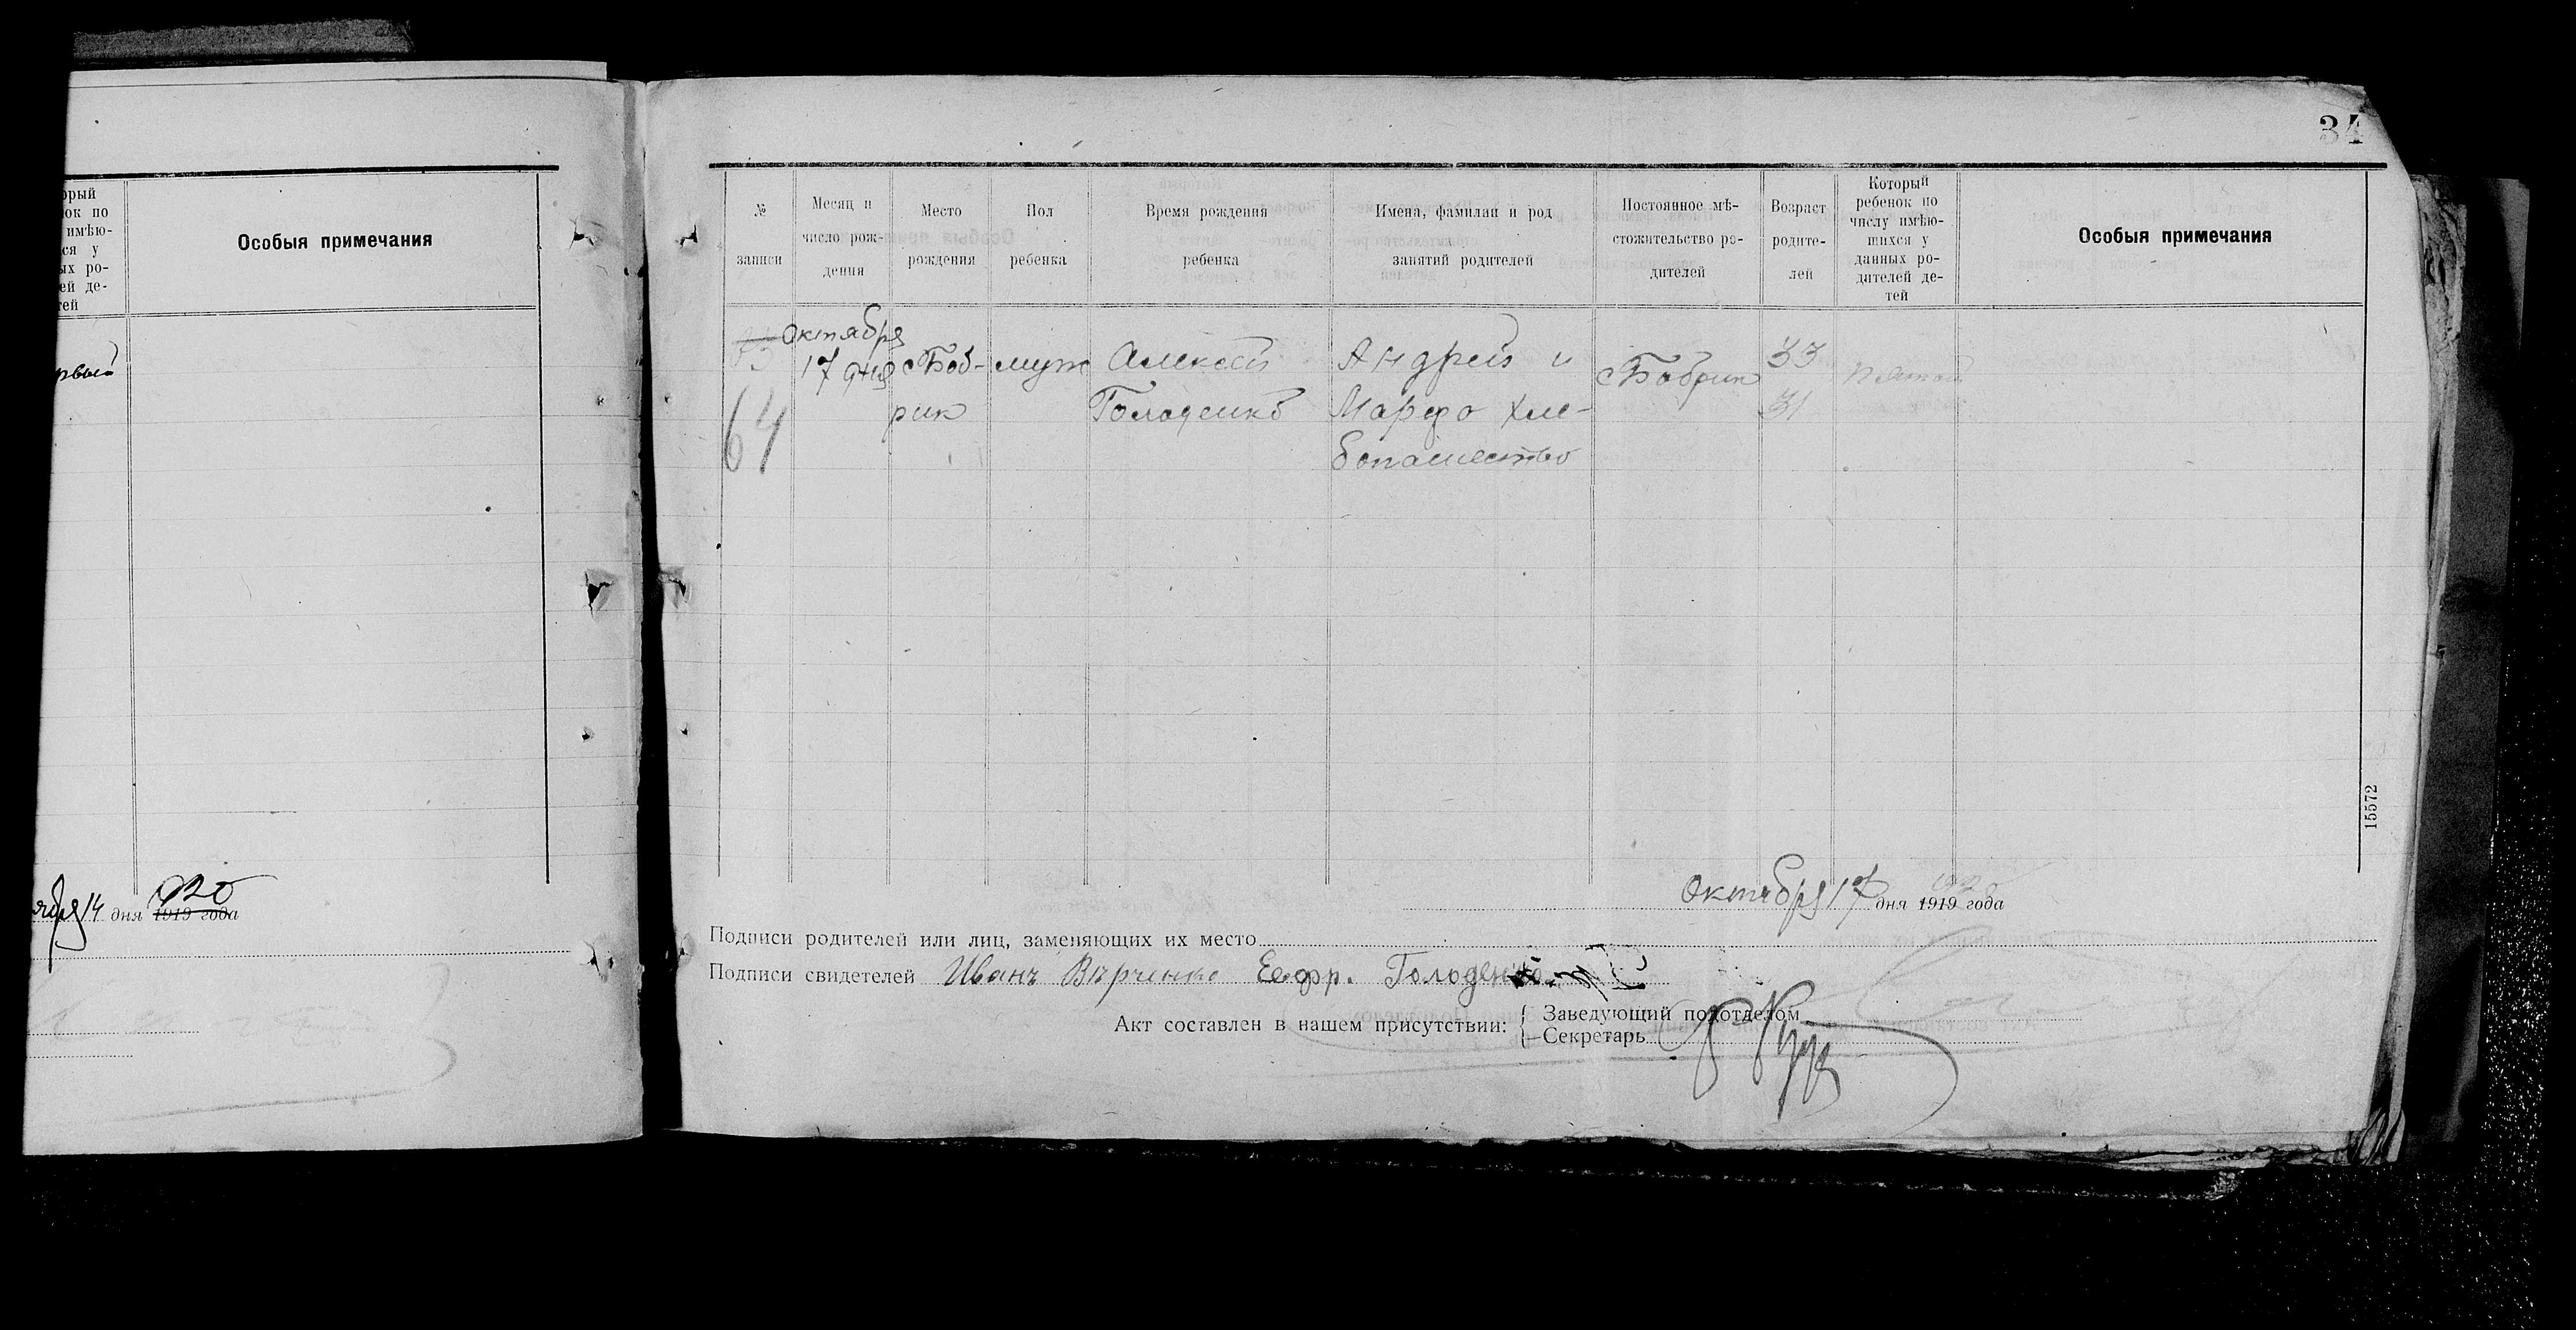 34
орый
ок по
имѣю-
ся у
ых ро-
ей де-
тей
Особыя примечания
рвый
14 дня 1919 года
920
№
записи
Месяц и
число рож-
дения
Место
рождения
Пол
ребенка
Время рождения
ребенка
Имена, фамилаи и род
занятий родителей
Постоянное мѣ-
стожительство ро-
дителей
Возраст
родите-
лей
Который
ребенок по
числу имѣю-
щихся у
данных ро-
дителей де-
тей
Особыя примечания
64
Октября
17 дня
с Боб-
рик
муж
Алексей
Голоденко
Андрей и
Марфа хле-
бопашество
с Бобрик
33
31
пятой
15572
Октября 17 дня 1919 года
920
Подписи родителей или лиц, заменяющих их место
Подписи свидетелей Иванъ Вѣрченко Еефр. Голоденко
Акт составлен в нашем присутствии:
Заведующий подотделом
Секретарь